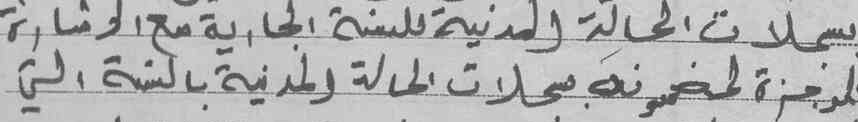 بسجلات الحالة المدنية للسنة الجارية مع الإشارة
الموجزة لمضمونه بسجلات الحالة المدنية بالسنة التي